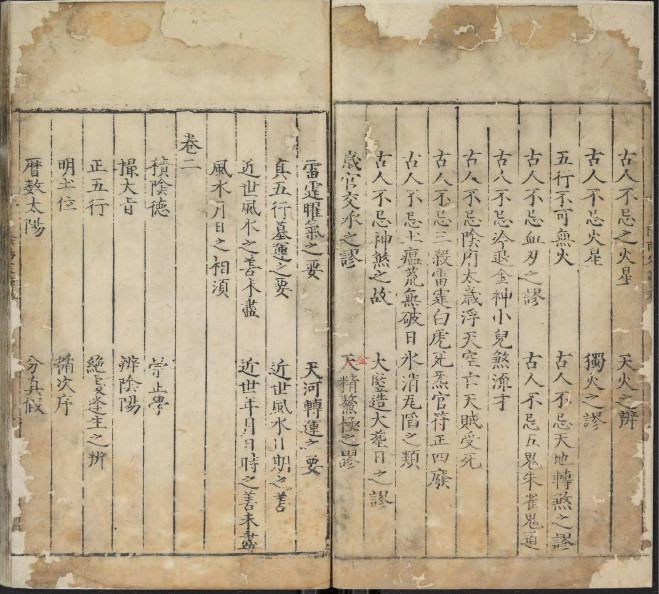 古人不忌之火星 天火之辨
古人不忌火星 獨火之謬
五行不可無火 古人不忌天地轉煞之謬
古人不忌血刃之謬 古人不忌五鬼朱雀鬼道
古人不忌冷退金神小兒煞流才
古人不忌陰府太歲浮天空亡天賊受死
古人不忌三殺雷霆白虎死炁官符正四廢
古人不忌土瘟荒蕪破日氷消瓦陷之類
古人不忌神煞之故 大墓之謬
歲官交承之謬 天精鰲極之謬
雷霆曜氣之要 天河轉運之要
真五行墓運之要 近世風水日期之善
近世風水之善未盡 近世年月日時之善未盡
風水月日之相須
卷二
積陰德 崇正學
撮大旨 辨陰陽
正五行 絶之辨
明土位 循次序
曆數太陽 分真假